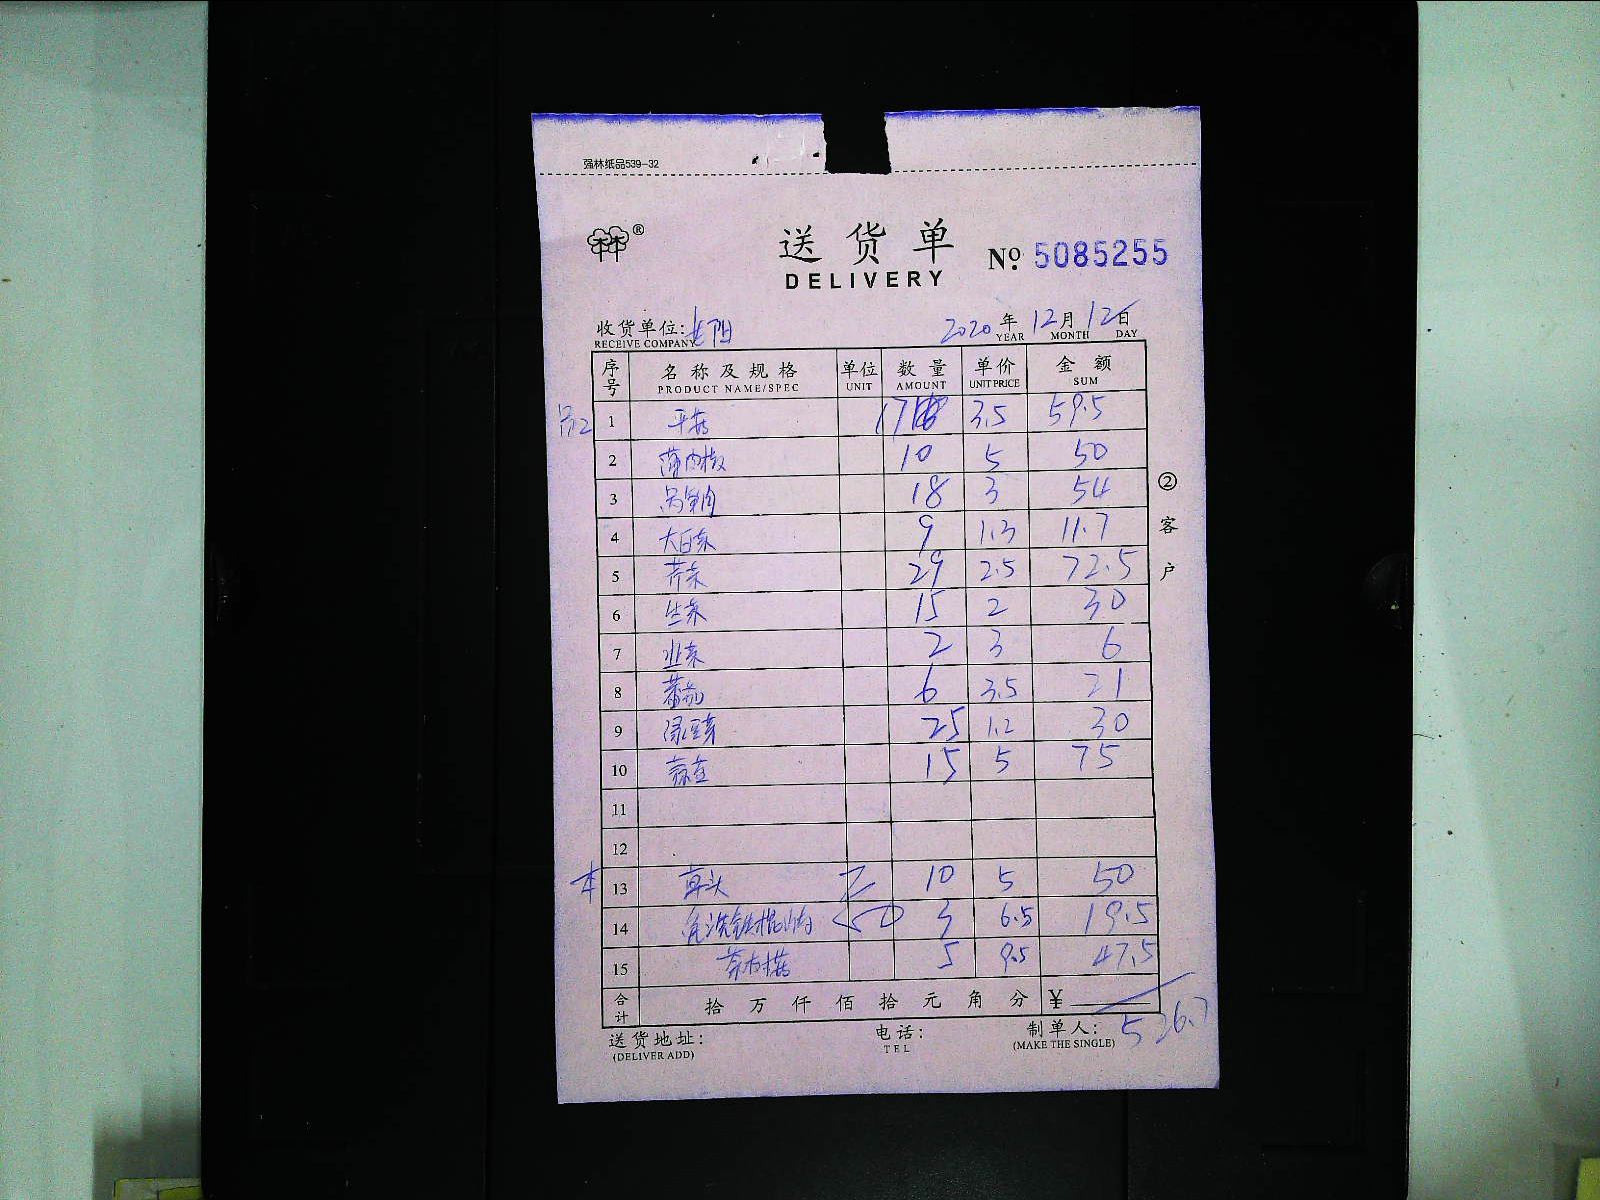 强林纸品539-32
林 ®
送货单 No. 5085255
DELIVERY
收货单位: 2020年12月12日
RECEIVE COMPANY YEAR MONTH DAY
序号 名称及规格 单位 数量 单价 金额
PRODUCT NAME/SPEC UNIT AMOUNT UNIT PRICE SUM
1 平菇 17 3.5 59.5
2 10 5 50
3 18 3 54
4 大白菜 9 1.3 11.7
5 芹菜 29 2.5 72.5
6 生菜 15 2 30
7 韭菜 2 3 6
8 番茄 6 3.5 21
9 绿豆芽 25 1.2 30
10 15 5 75
11
12
本 13 草头 10 5 50
14 3 6.5 19.5
15 5 9.5 47.5
合计 拾 万 仟 佰 拾 元 角 分 ¥ 526.7
送货地址: 电话: 制单人:
(DELIVER ADD) TEL (MAKE THE SINGLE)
② 客户